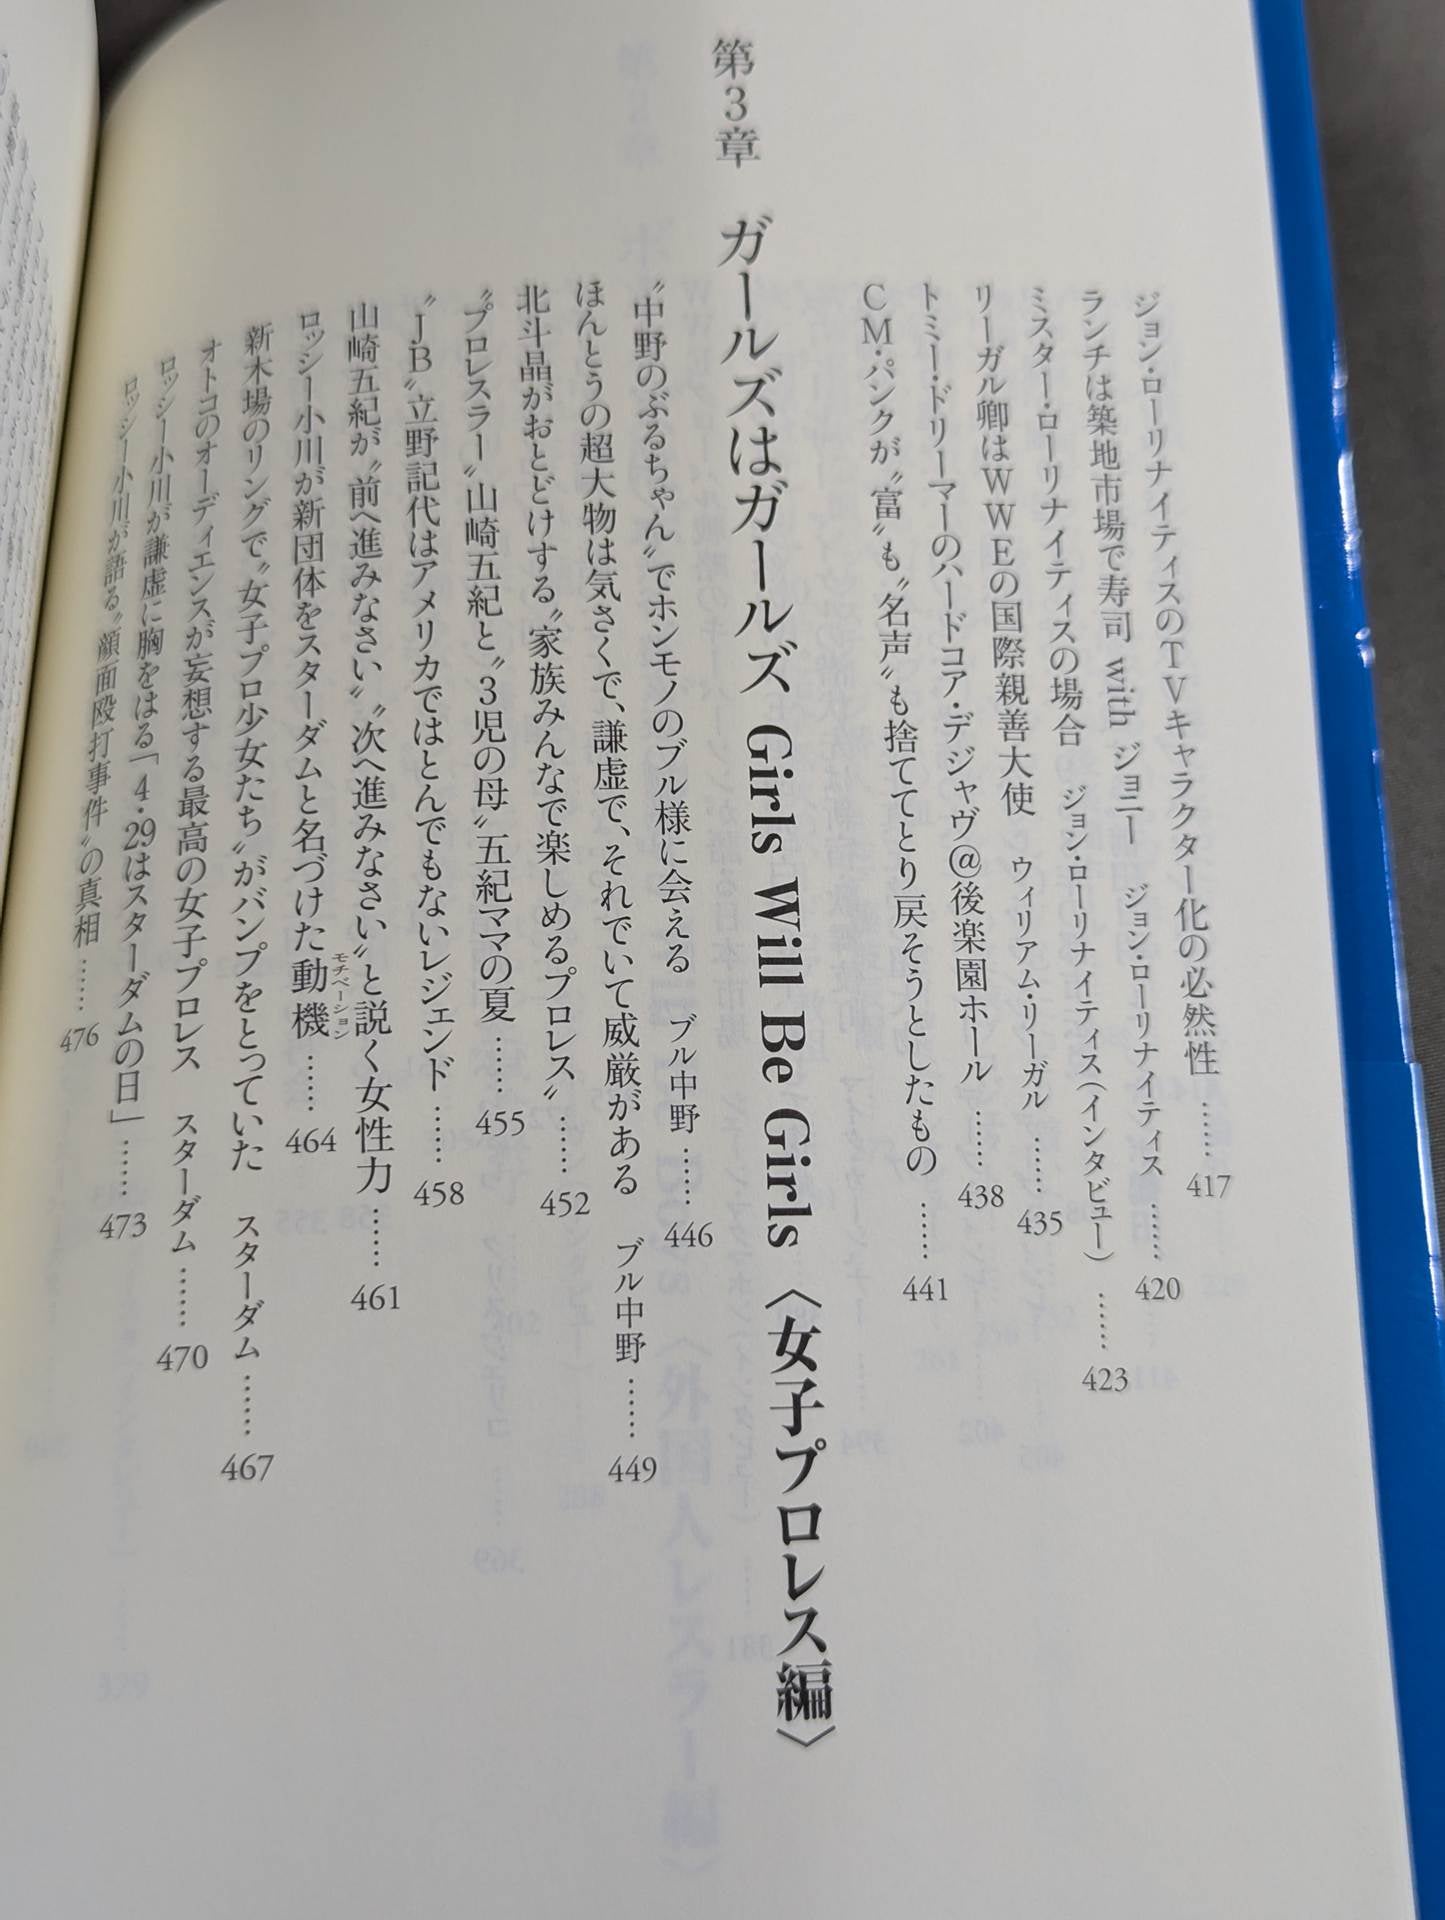 ジョン・ローリナイティスのTVキャラクター化の必然性 …… 417
ランチは築地市場で寿司 with ジョニー　ジョン・ローリナイティス …… 420
ミスター・ローリナイティスの場合　ジョン・ローリナイティス（インタビュー） …… 423
リーガル卿はWWEの国際親善大使　ウィリアム・リーガル …… 435
トミー・ドリーマーのハードコア・デジャヴ@後楽園ホール …… 438
CM・パンクが〝富〟も〝名声〟も捨ててとり戻そうとしたもの …… 441
第3章　ガールズはガールズ Girls Will Be Girls〈女子プロレス編〉
〝中野のぶるちゃん〟でホンモノのブル様に会える　ブル中野 …… 446
ほんとうの超大物は気さくで、謙虚で、それでいて威厳がある　ブル中野 …… 449
北斗晶がおとどけする〝家族みんなで楽しめるプロレス〟 …… 452
〝プロレスラー〟山崎五紀と〝3児の母〟五紀ママの夏 …… 455
〝JB〟立野記代はアメリカではとんでもないレジェンド …… 458
山崎五紀が〝前へ進みなさい〟〝次へ進みなさい〟と説く女性力 …… 461
ロッシー小川が新団体をスターダムと名づけた動機 …… 464
モチベーション
新木場のリングで〝女子プロ少女たち〟がバンプをとっていた　スターダム …… 467
オトコのオーディエンスが妄想する最高の女子プロレス　スターダム …… 470
ロッシー小川が謙虚に胸をはる「4・29はスターダムの日」 …… 473
ロッシー小川が語る〝顔面殴打事件〟の真相 …… 476